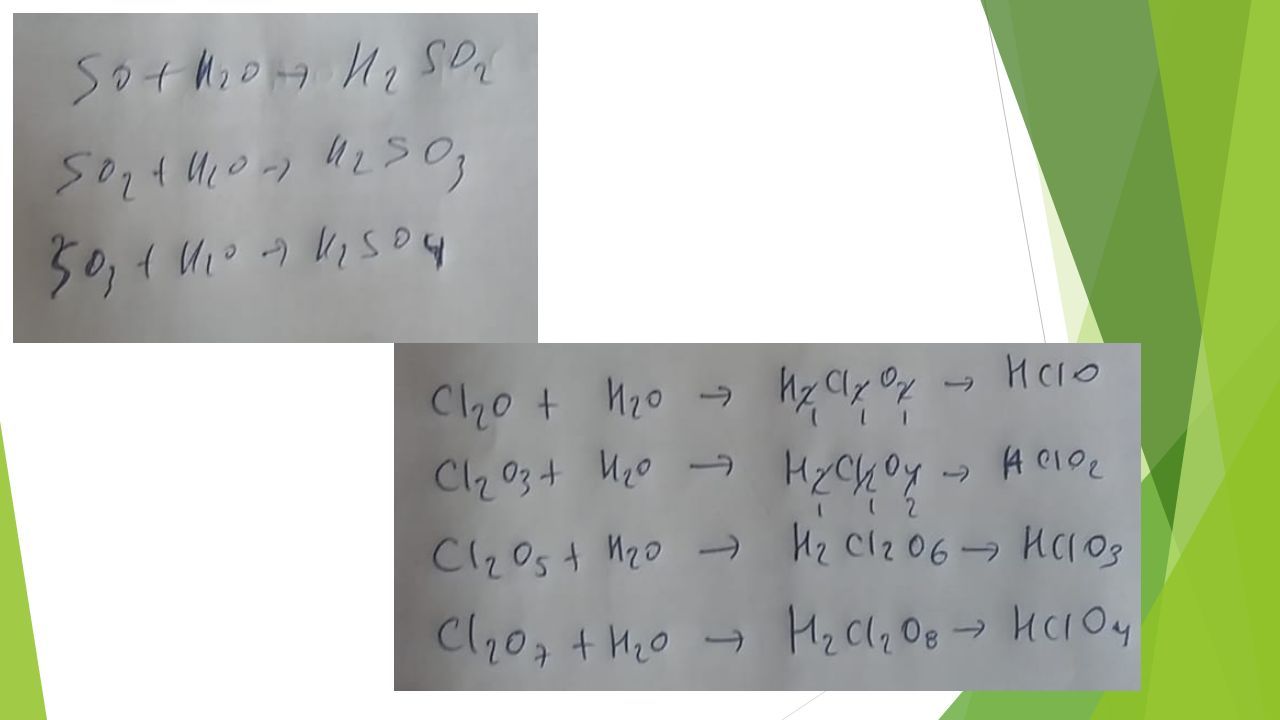 SO + H2O → H2SO2
SO2 + H2O → H2SO3
SO3 + H2O → H2SO4
Cl2O + H2O → H2Cl2O2 → HClO
1 1 1
Cl2O3 + H2O → H2Cl2O4 → HClO2
1 1 2
Cl2O5 + H2O → H2Cl2O6 → HClO3
Cl2O7 + H2O → H2Cl2O8 → HClO4